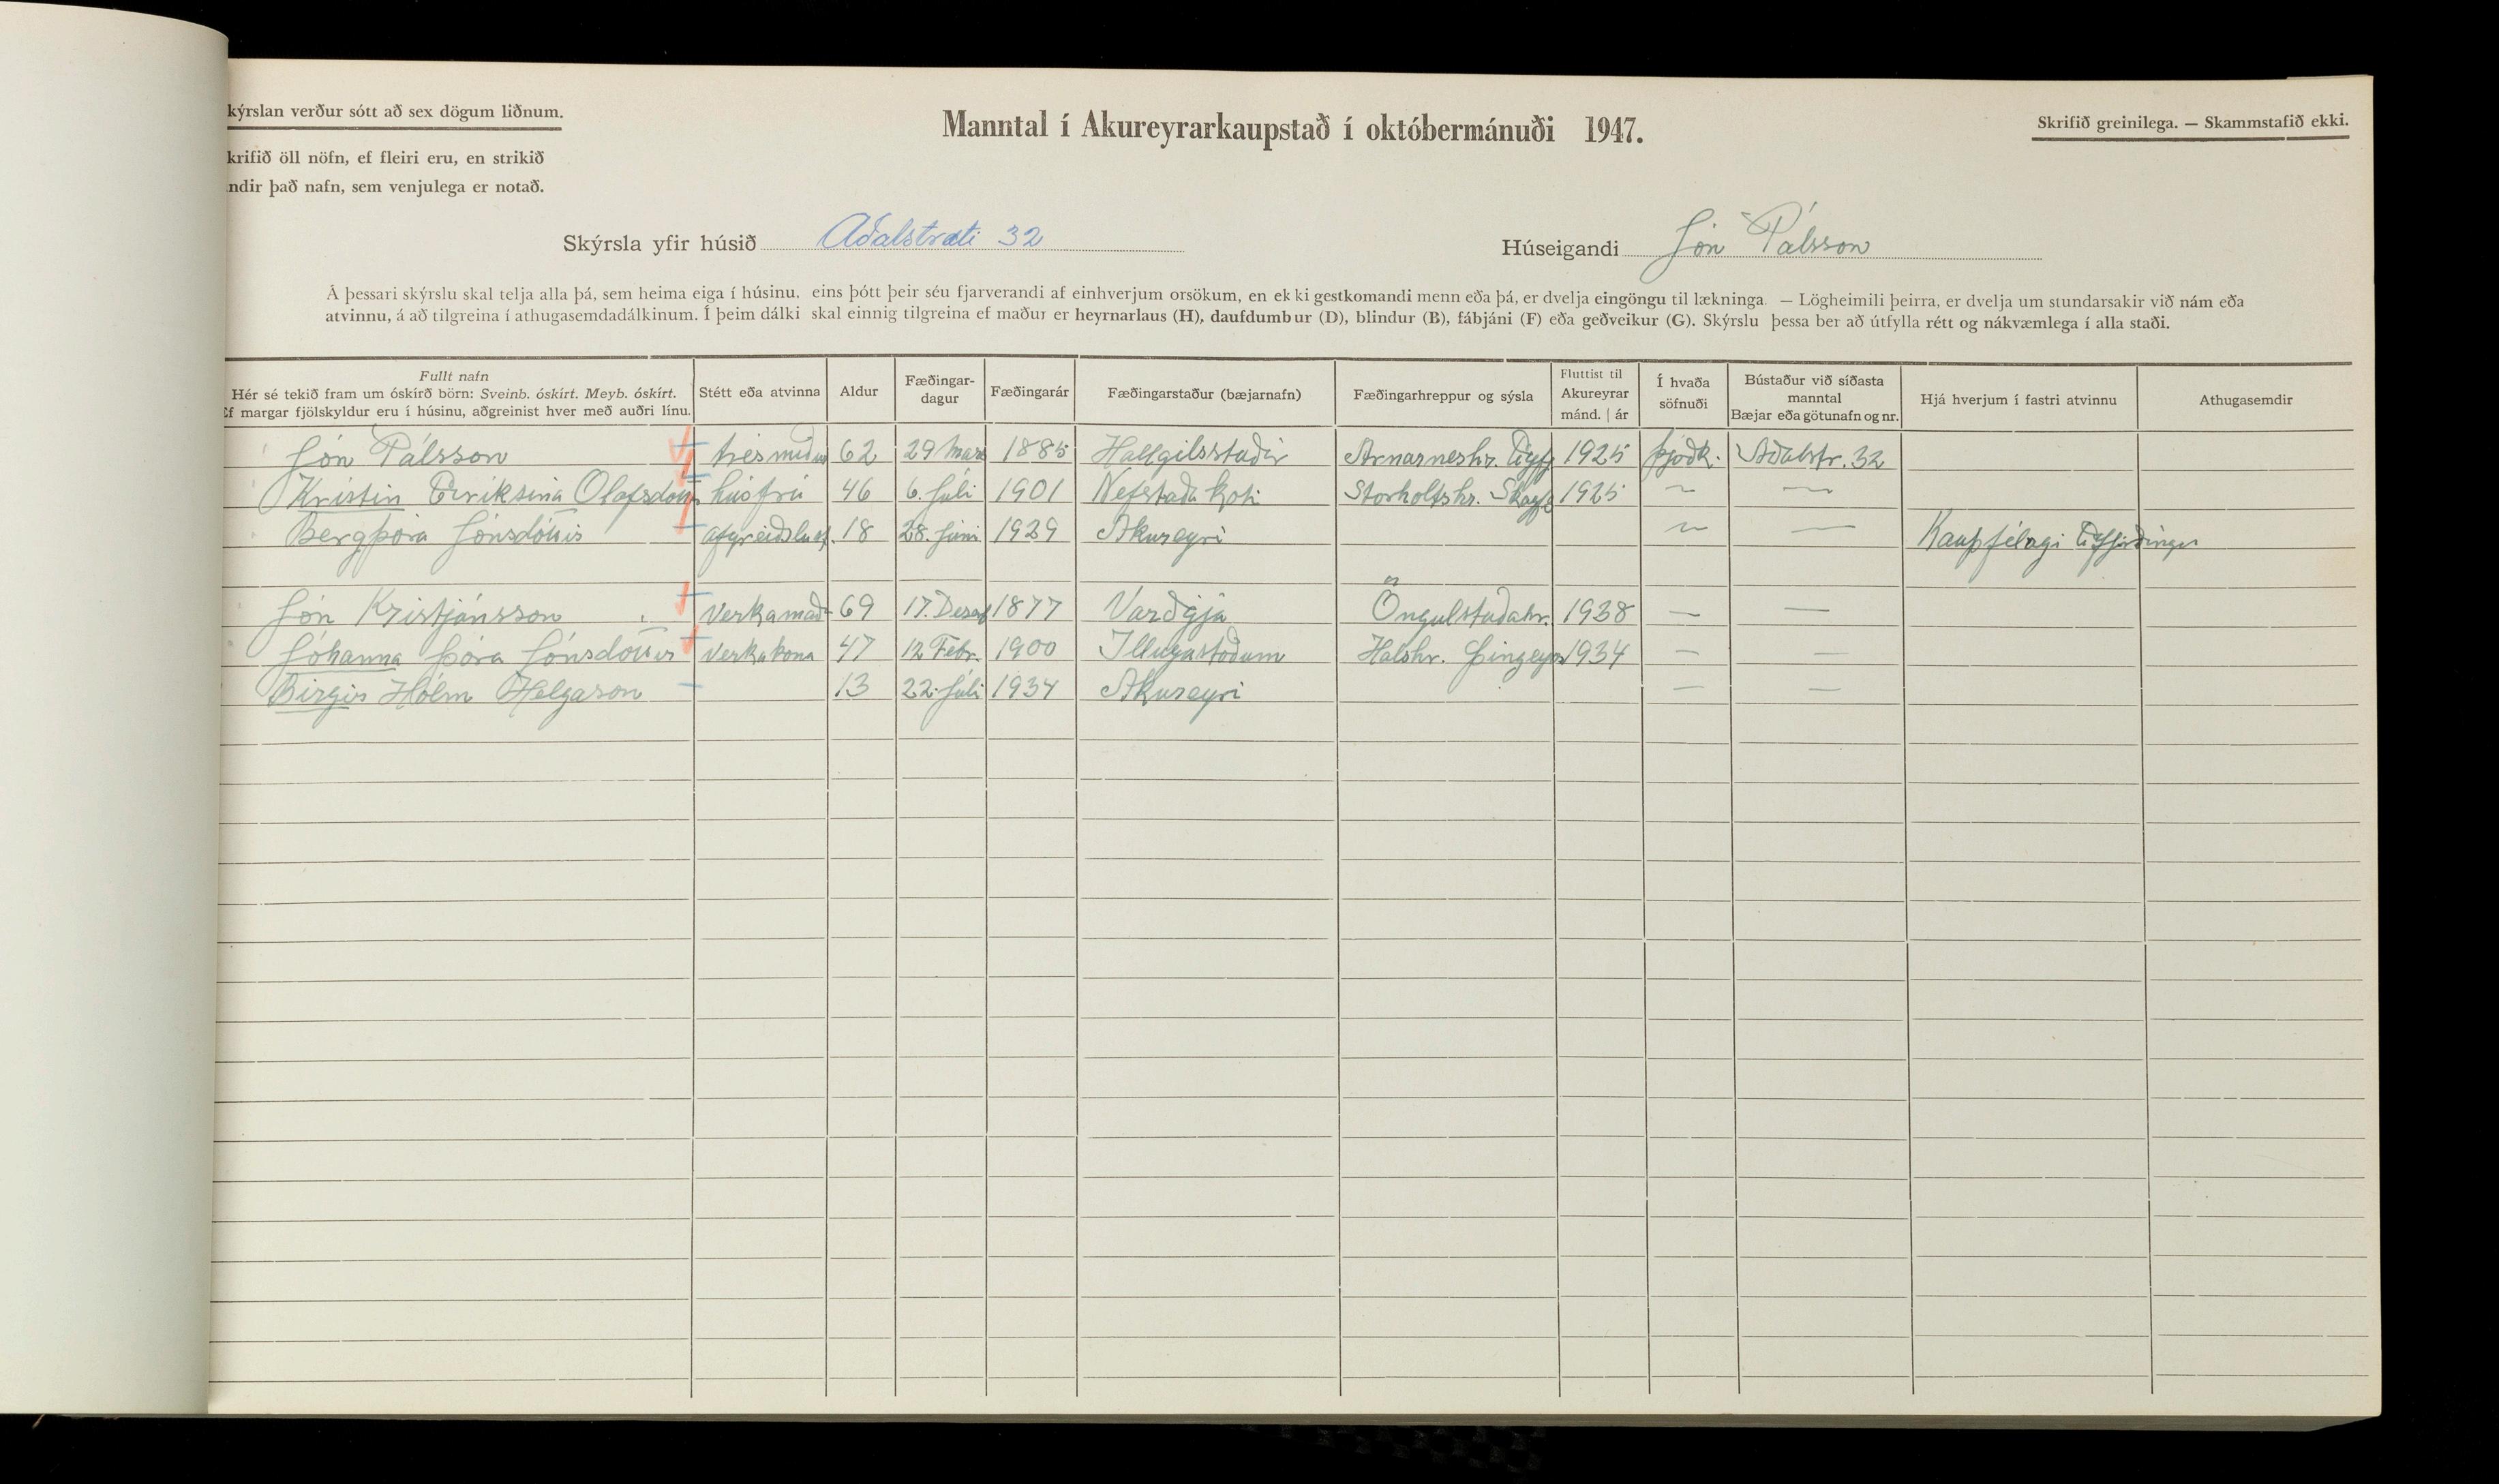 kýrslan verður sótt að sex dögum liðnum.
Manntal í Akureyrarkaupstað í októbermánuði 1947.
Skrifið greinilega. — Skammstafið ekki.
krifið öll nöfn, ef fleiri eru, en strikið
ndir það nafn, sem venjulega er notað.
Skýrsla yfir húsið Aðalstræti 32
Húseigandi Jón Pálsson
Á þessari skýrslu skal telja alla þá, sem heima eiga í húsinu, eins þótt þeir séu fjarverandi af einhverjum orsökum, en ekki gestkomandi menn eða þá, er dvelja eingöngu til lækninga. — Lögheimili þeirra, er dvelja um stundarsakir við nám eða
atvinnu, á að tilgreina í athugasemdadálkinum. Í þeim dálki skal einnig tilgreina ef maður er heyrnarlaus (H), daufdumbur (D), blindur (B), fábjáni (F) eða geðveikur (G). Skýrslu þessa ber að útfylla rétt og nákvæmlega í alla staði.
Fullt nafn
Hér sé tekið fram um óskírð börn: Sveinb. óskírt. Meyb. óskírt.
Ef margar fjölskyldur eru í húsinu, aðgreinist hver með auðri línu.
Stétt eða atvinna
Aldur
Fæðingar-
dagur
Fæðingarár
Fæðingarstaður (bæjarnafn)
Fæðingarhreppur og sýsla
Fluttist til
Akureyrar
mánd. | ár
Í hvaða
söfnuði
Bústaður við síðasta
manntal
Bæjar eða götunafn og nr.
Hjá hverjum í fastri atvinnu
Athugasemdir
Jón Pálsson trésmiður 62 29 Mars 1885 Hallgilsstaðir Arnarneshr. Eyjf 1925 Þjóðk. Aðalstr. 32
Kristín Eiríksína Ólafsdóttir húsfrú 46 6. Júlí 1901 Nefstaðakoti Storholtshr. Skagf 1925 ~ —
Bergþóra Jónsdóttir afgreiðslust. 18 28. Júní 1929 Akureyri ~ — Kaupfélagi Eyfirðinga
Jón Kristjánsson Verkamað 69 17. Desemb 1877 Varðgjá Öngulstaðahr. 1938 — —
Jóhanna Þóra Jónsdóttir Verkakona 47 12 Febr. 1900 Illugastöðum Halshr. Þingeyjar 1934 — —
Birgir Hólm Helgason 13 22. Júlí 1934 Akureyri — —